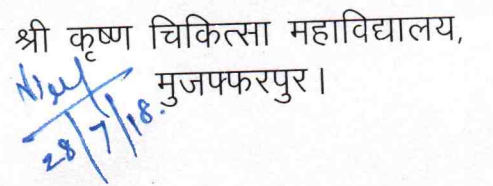 श्री कृष्ण चिकित्सा महाविद्यालय,
मुजफ्फरपुर।
28/7/18.